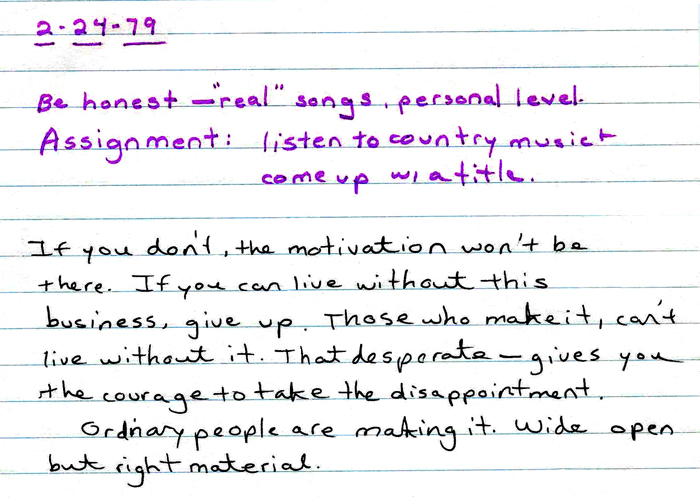 2-24-79
Be honest – "real" songs, personal level.
Assignment: listen to country music +
come up w/ a title.
If you don't, the motivation won't be
there. If you can live without this
business, give up. Those who make it, can't
live without it. That desperate – gives you
the courage to take the disappointment.
Ordnary people are making it. Wide open
but right material.